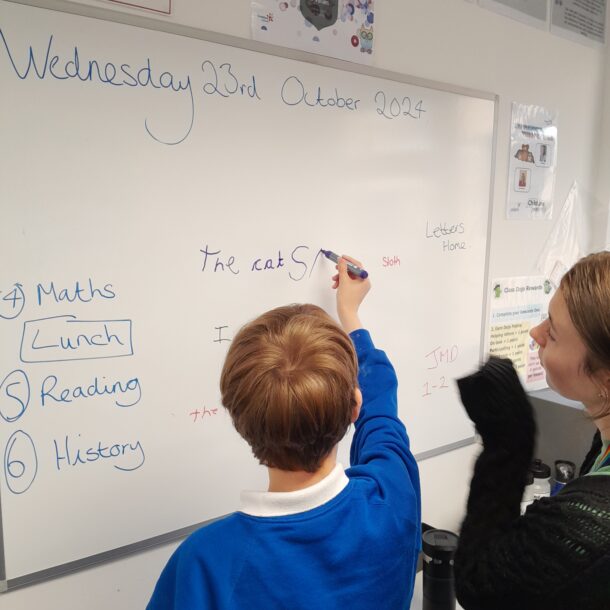 Wednesday 23rd October 2024
Letters
Home
the cat S
Sloth
④ Maths
Lunch
I
JMD
1-2
⑤ Reading
the
⑥ History
Class Dojo Rewards